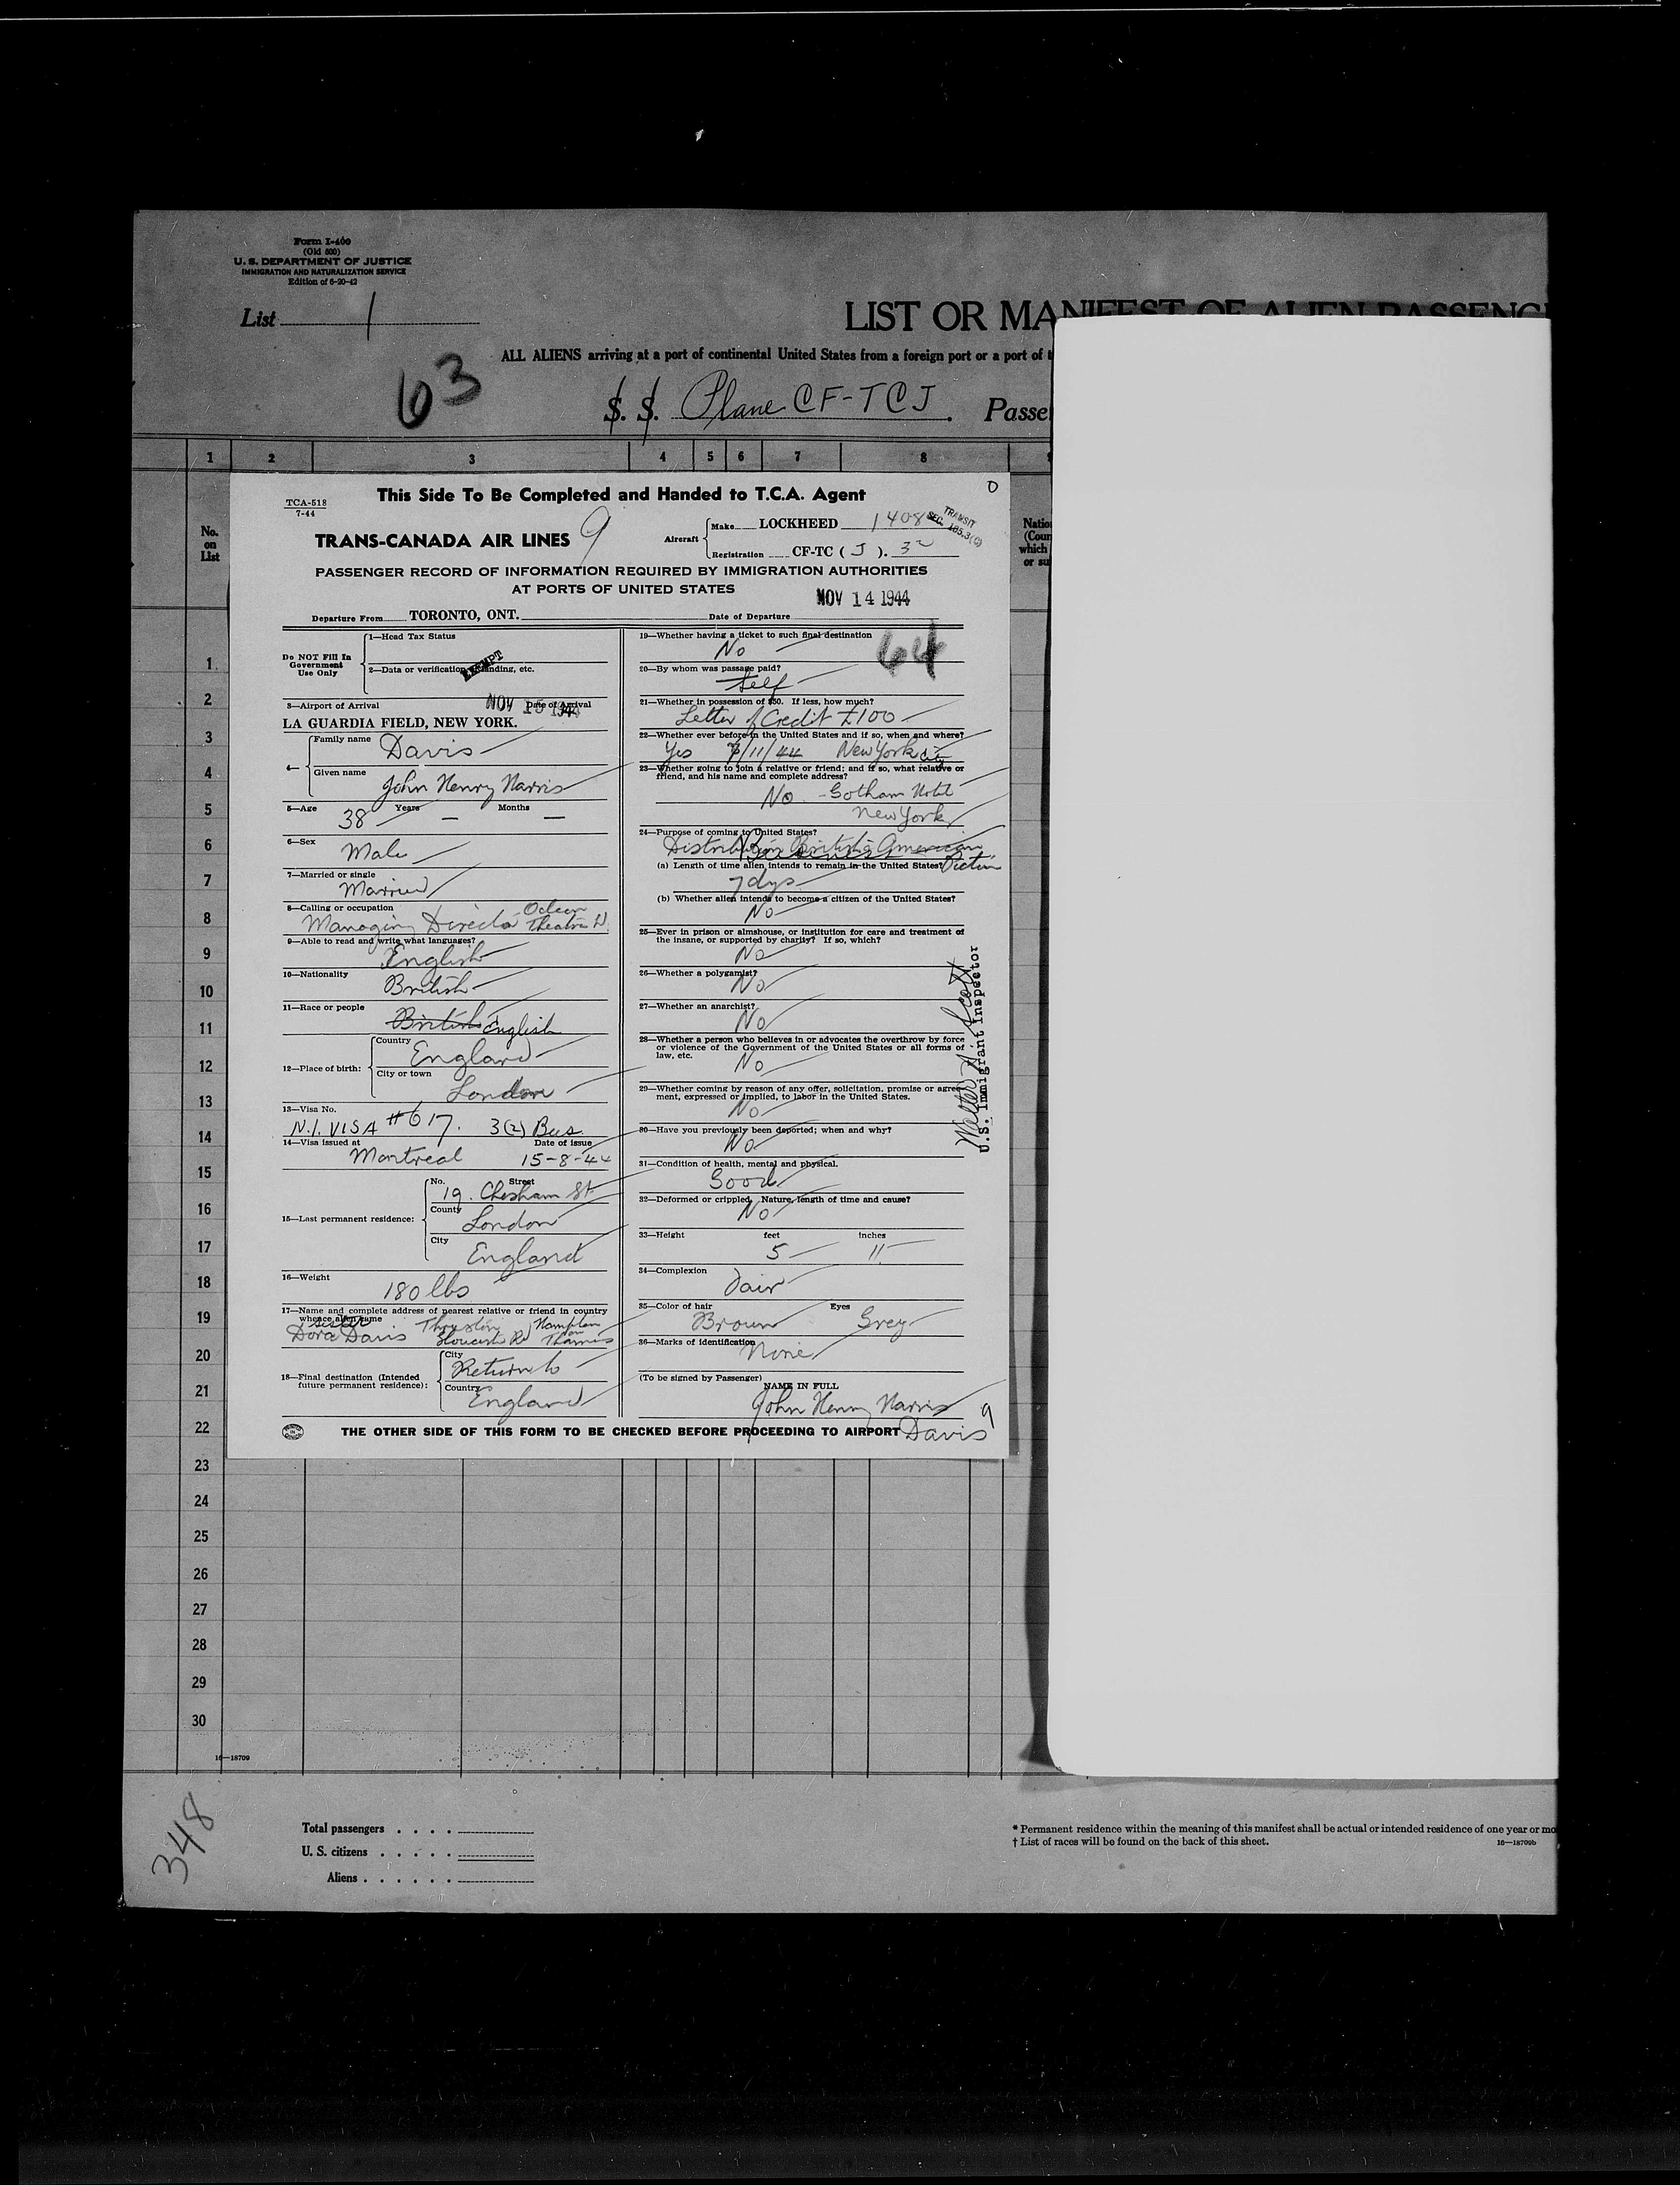 Form I-400
(Old 500)
U. S. DEPARTMENT OF JUSTICE
IMMIGRATION AND NATURALIZATION SERVICE
Edition of 6-20-42
List 1
LIST OR MANIFEST OF ALIEN PASSENG
ALL ALIENS arriving at a port of continental United States from a foreign port or a port of t
63
S. S. Plane CF-TCJ Passe
1 2 3 4 5 6 7 8
No. on List
TCA-518
7-44
This Side To Be Completed and Handed to T.C.A. Agent
TRANS-CANADA AIR LINES 9
Aircraft
Make LOCKHEED 1408
TRANSIT
SEC. 185.3(C)
Registration CF-TC ( J ). 32
PASSENGER RECORD OF INFORMATION REQUIRED BY IMMIGRATION AUTHORITIES
AT PORTS OF UNITED STATES
NOV 14 1944
Departure From TORONTO, ONT. Date of Departure
Do NOT Fill In
Government
Use Only
1—Head Tax Status
EXEMPT
2—Data or verification, landing, etc.
3—Airport of Arrival Date of Arrival
NOV 15 1944
LA GUARDIA FIELD, NEW YORK.
4—
Family name Davis
Given name John Henry Harris
5—Age Years Months
38 — —
6—Sex
Male
7—Married or single
Married
8—Calling or occupation
Managing Director Odeon
Theatres
9—Able to read and write what languages?
English
10—Nationality
British
11—Race or people
British English
12—Place of birth:
Country
England
City or town
London
13—Visa No.
N.I. VISA #617. 3(2) Bus.
14—Visa issued at Date of issue
Montreal 15-8-44
15—Last permanent residence:
No. Street
19. Chesham St
County
London
City
England
16—Weight
180 lbs
17—Name and complete address of nearest relative or friend in country
whence alien came
sister
Dora Davis Hampton
Gloucester Rd on Thames
18—Final destination (Intended
future permanent residence):
City
Return to
Country
England
19—Whether having a ticket to such final destination
No
64
20—By whom was passage paid?
Self
21—Whether in possession of $50. If less, how much?
Letter of Credit £100
22—Whether ever before in the United States and if so, when and where?
Yes 7/11/44 New York City
23—Whether going to join a relative or friend; and if so, what relative or
friend, and his name and complete address?
No - Gotham Hotel
New York
24—Purpose of coming to United States?
Business
Distribution British American
(a) Length of time alien intends to remain in the United States?
7 dys
(b) Whether alien intends to become a citizen of the United States?
No
25—Ever in prison or almshouse, or institution for care and treatment of
the insane, or supported by charity? If so, which?
No
26—Whether a polygamist?
No
27—Whether an anarchist?
No
28—Whether a person who believes in or advocates the overthrow by force
or violence of the Government of the United States or all forms of
law, etc.
No
29—Whether coming by reason of any offer, solicitation, promise or agree-
ment, expressed or implied, to labor in the United States.
No
30—Have you previously been deported; when and why?
No
31—Condition of health, mental and physical.
Good
32—Deformed or crippled. Nature, length of time and cause?
No
33—Height feet inches
5 11
34—Complexion
Fair
35—Color of hair Eyes
Brown Grey
36—Marks of identification
None
(To be signed by Passenger)
NAME IN FULL
John Henry Harris
Davis
9
Walter A. Scott
U.S. Immigrant Inspector
THE OTHER SIDE OF THIS FORM TO BE CHECKED BEFORE PROCEEDING TO AIRPORT
Natio
(Coun
which
or su
1
2
3
4
5
6
7
8
9
10
11
12
13
14
15
16
17
18
19
20
21
22
23
24
25
26
27
28
29
30
16—18709
348
Total passengers
U. S. citizens
Aliens
* Permanent residence within the meaning of this manifest shall be actual or intended residence of one year or mo
† List of races will be found on the back of this sheet. 16—18709b